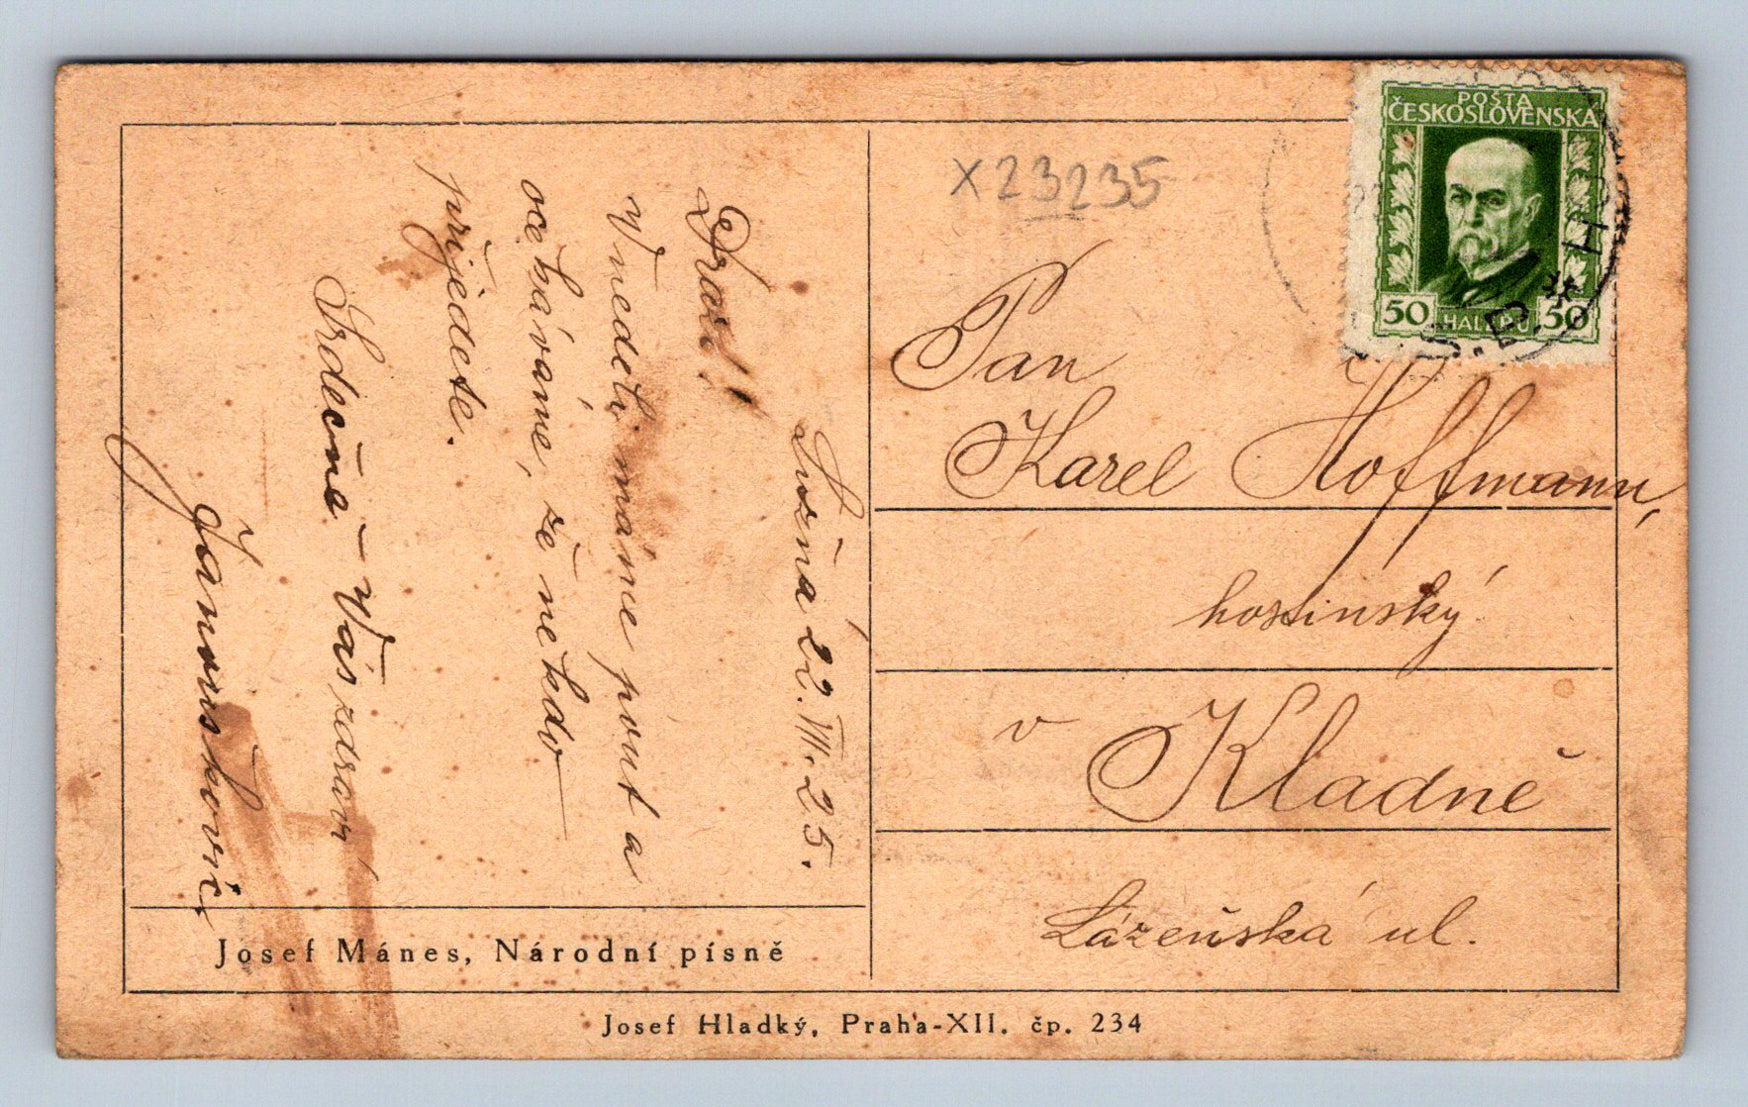 Lužná 22. VIII. 25.
Drazí!
V neděli máme pouť a
očekáváme, že někdo
přijedete.
Srdečně Vás zdraví
Janouškovi.
Josef Mánes, Národní písně
X23235
POŠTA
ČESKOSLOVENSKÁ
50 HALÉŘŮ 50
Pan
Karel Hoffmann,
hostinský
v Kladně
Lázeňská ul.
Josef Hladký, Praha-XII. čp. 234